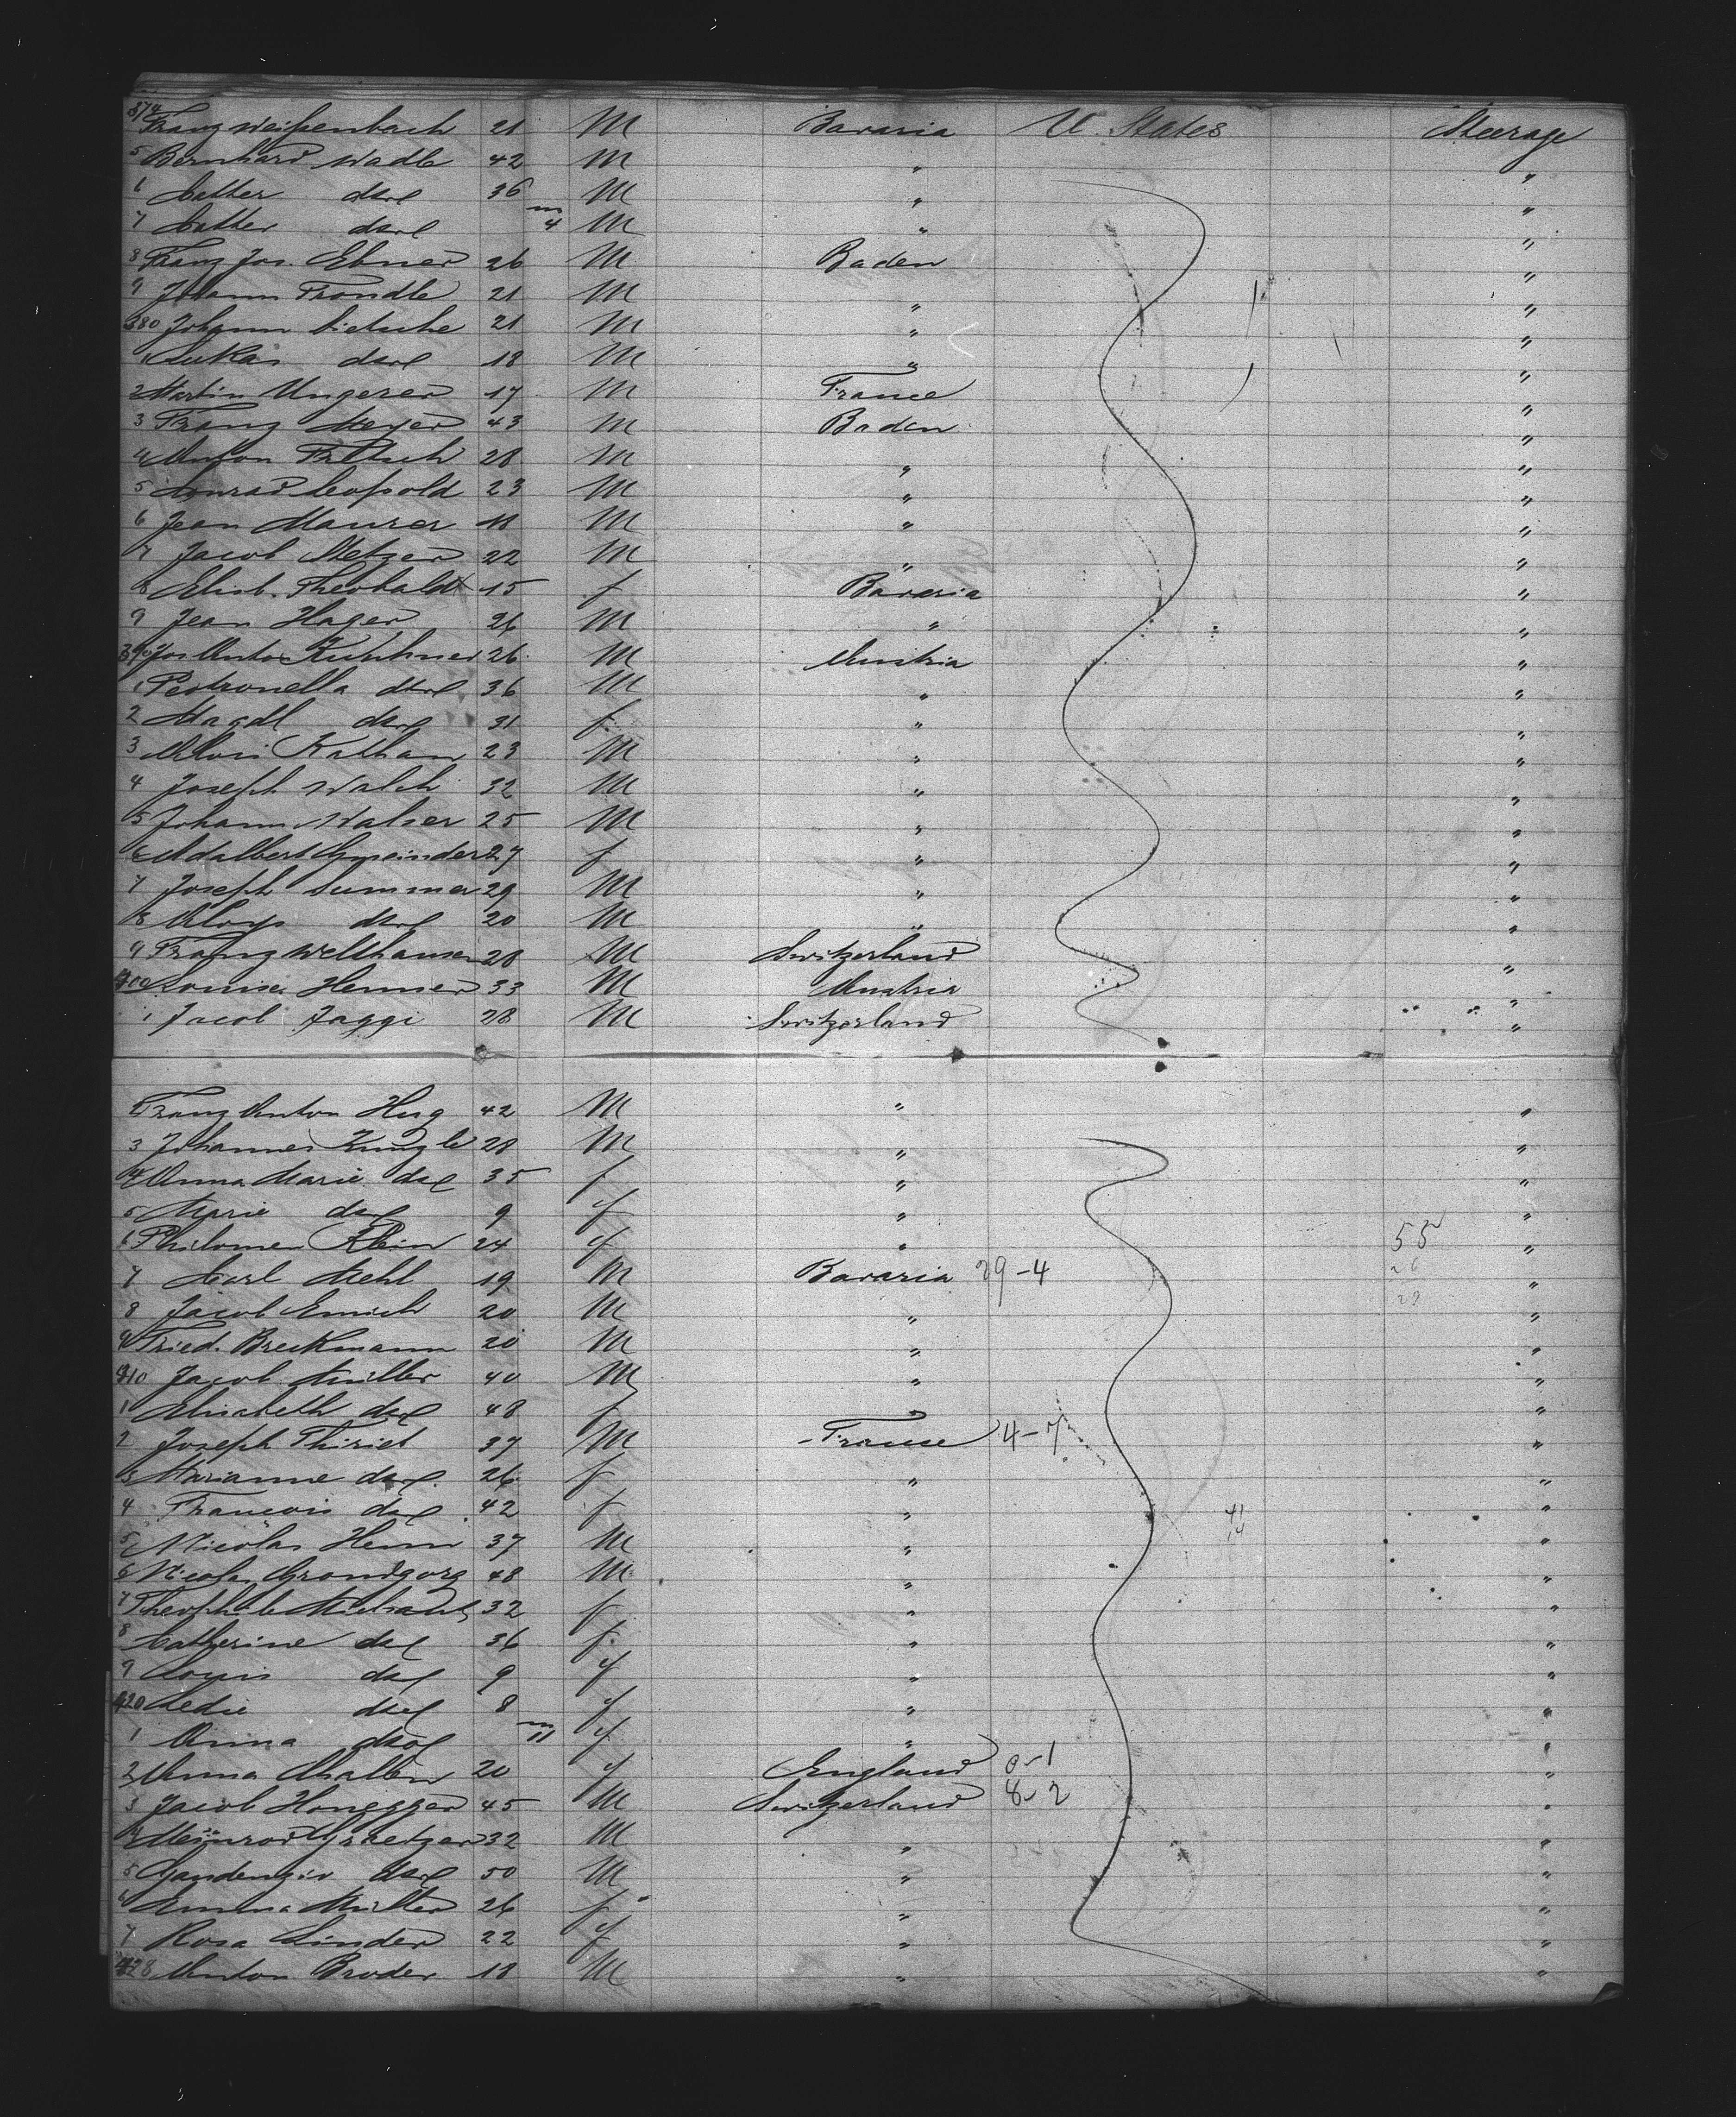 374 Franz Weißenbach 21 M Bavaria U. States Steerage
5 Bernhard Wadle 42 M " "
6 Cather dsel 36 M " "
7 Cather dsel m 4 M " "
8 Franz Jos. Ebner 26 M Baden "
9 Johann Trondle 21 M " "
380 Johann 21 M " "
1 Lukas dsel 18 M " "
2 Martin Ungerer 17 M France "
3 Franz Meyer 43 M Baden "
4 Anton Fritsch 28 M " "
5 Conrad Leopold 23 M " "
6 Jean Maurer 18 M " "
7 Jacob Metzger 22 M " "
8 Elisb. Theobaldt 15 f Bavaria "
9 Jean Hager 26 M " "
390 Jos Anto 26 M Austria "
1 Petronella dsel 36 M " "
2 Magdl dsel 31 f " "
3 Alois Kathan 23 M " "
4 Joseph Walch 32 M " "
5 Johann Walser 25 M " "
6 Adalbert Gmeinder 27 f " "
7 Joseph Summer 29 M " "
8 Aloys dsel 20 M " "
9 Franz Welthauser 28 M Switzerland "
400 Louise Hemmer 33 M Austria "
1 Jacob Jaggi 28 M Switzerland "
2 Franz Anton Hug 42 M " "
3 Johannes Kunzle 28 M " "
4 Anna Marie dsel 35 f " "
5 Marie dsel 9 f " "
6 Philomen Klein 24 f " 55 "
7 Carl Mehl 19 M Bavaria 29-4 26 "
8 Jacob Emich 20 M " 29 "
9 Fried. Breckmann 20 M " "
410 Jacob Müller 40 M " "
1 Elisabeth dsel 48 f " "
2 Joseph Thiriet 37 M France 4-7 "
3 Marianne dsel 26 f " "
4 Francois dsel 42 f " "
5 Nicolas Henn 37 M " "
6 Nicolas Grandgorg 48 M " "
7 Theophile 32 f " "
8 Catherine dsel 36 f " "
9 Louis dsel 9 f " "
420 Ledie dsel 8 f " "
1 Anna dsel m 11 f " "
2 Anna 20 f England 0-1 "
3 Jacob Honeggger 45 M Switzerland 8-2 "
4 Meinrad 32 M " "
5 Gaudenzio dsel 50 M " "
6 Emma Müller 26 f " "
7 Rosa Linder 22 f " "
428 Anton Broder 18 M " "